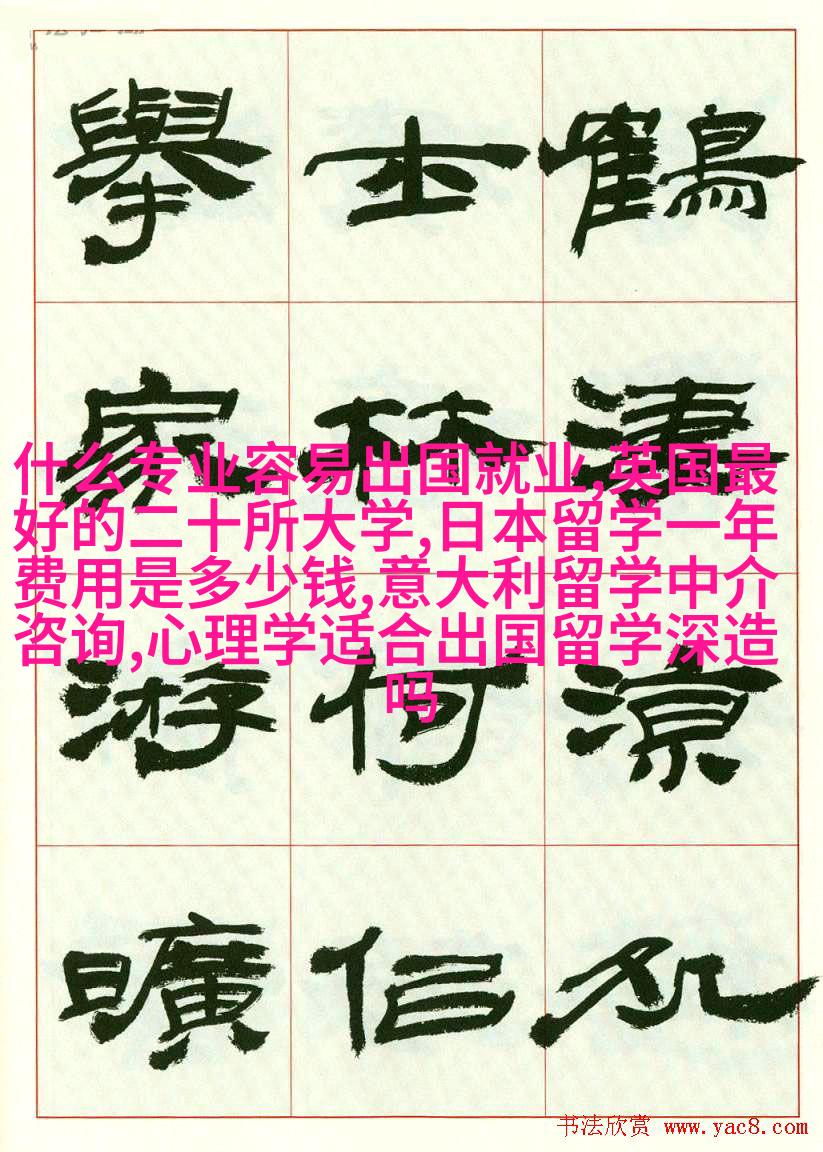 鶴淒涼
士林何侣
舉家游曠
什么专业容易出国就业,英国最
好的二十所大学,日本留学一年
费用是多少钱,意大利留学中介
咨询,心理学适合出国留学深造
吗
书法欣赏 www.yac8.com